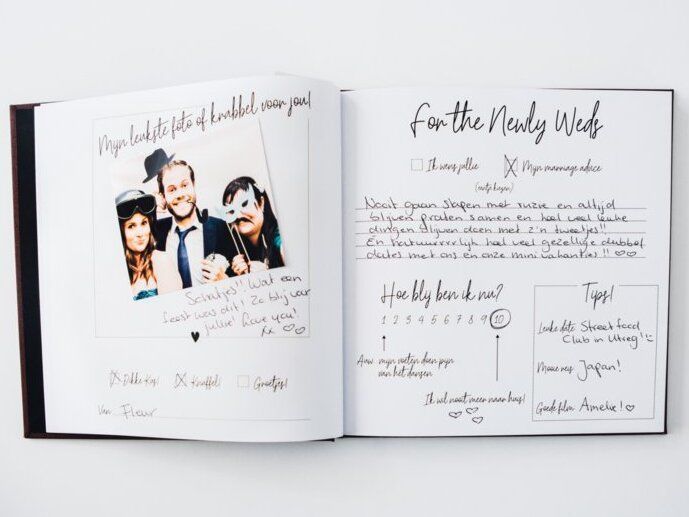 Mijn leukste foto of krabbel voor jou!
Schatjes!! Wat een
feest was dit! Zo blij voor
jullie! Love you!
xx
Dikke Kus! Knuffel! Groetjes!
Van Fleur
For the Newly Weds
Ik wens jullie Mijn marriage advice
Nooit gaan slapen met ruzie en altijd
blijven praten samen en heel veel leuke
dingen blijven doen met z'n tweetjes!!
En natuurrrrlijk heel veel gezellige dubbel
dates met ons en onze mini vakanties!!
Hoe blij ben ik nu?
1 2 3 4 5 6 7 8 9 10
Auw mijn voeten doen pijn
van het dansen
Ik wil nooit meer naar huis!
Tips!
Leuke date Street food
Club in Utreg!
Mooie reis Japan!
Goede film Amelie!